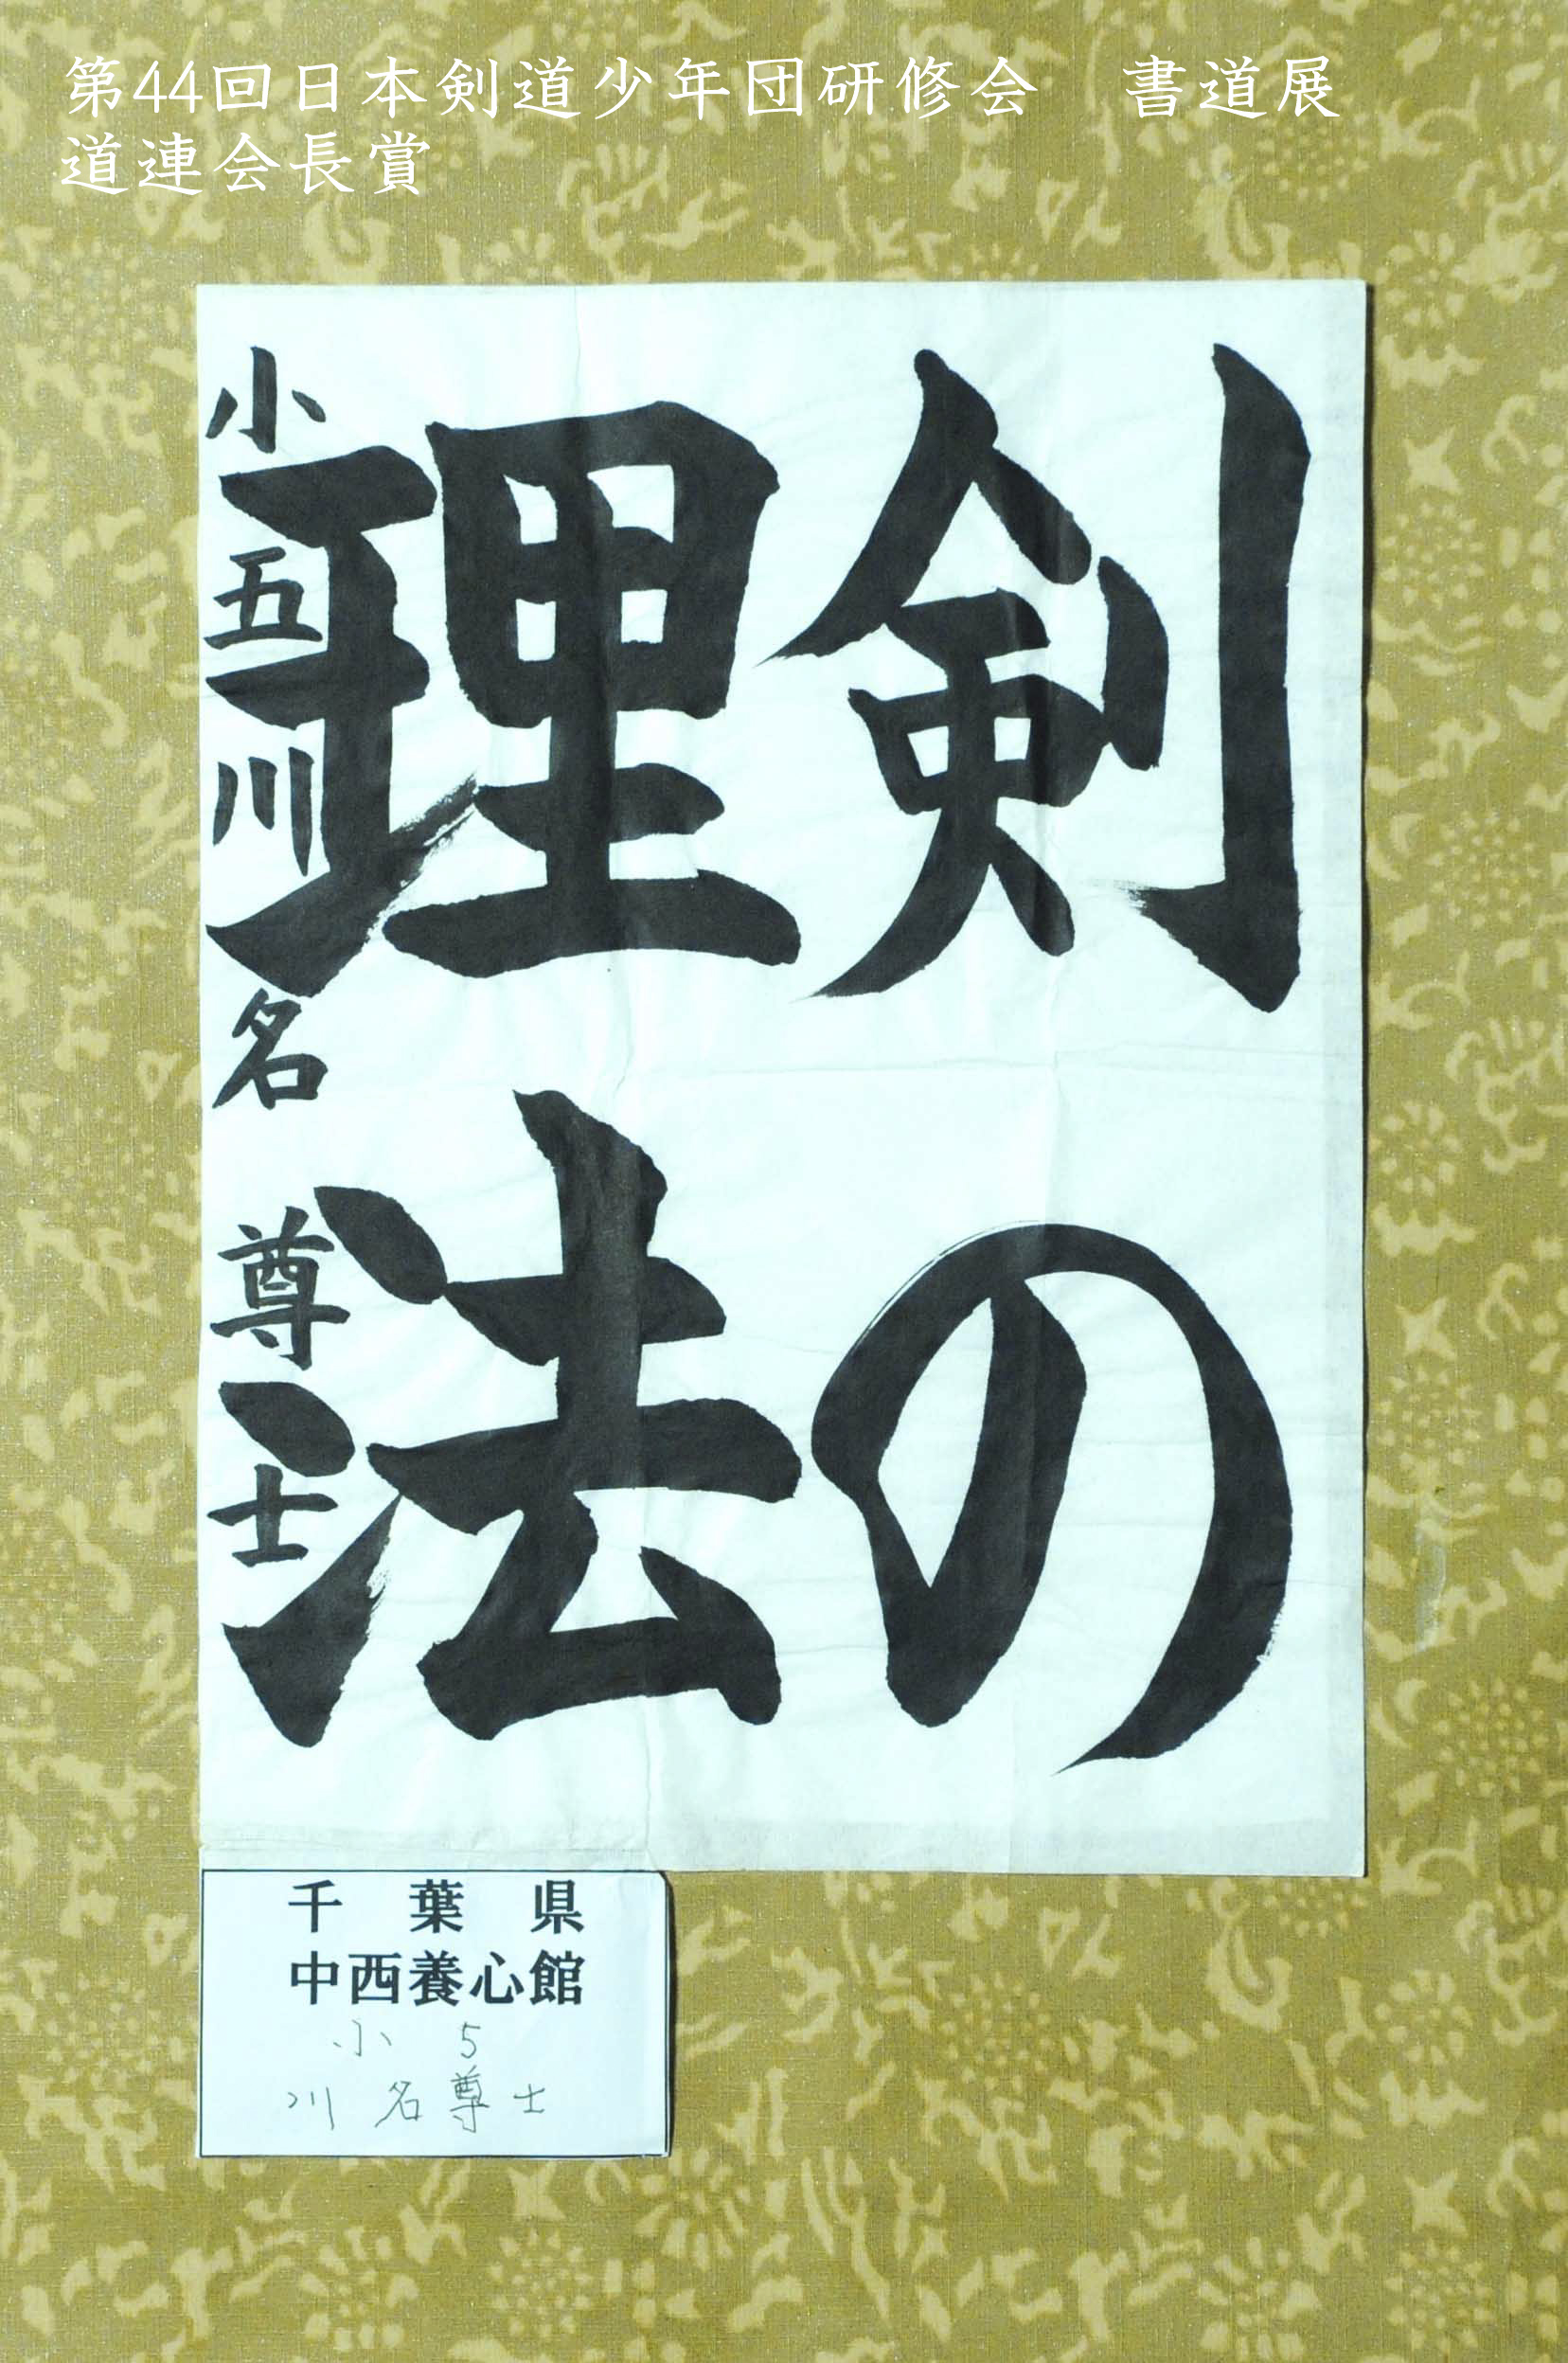 第44回日本剣道少年団研修会　書道展
道連会長賞
剣の
理法
小五川名　尊士
千葉県
中西養心館
小5
川名尊士